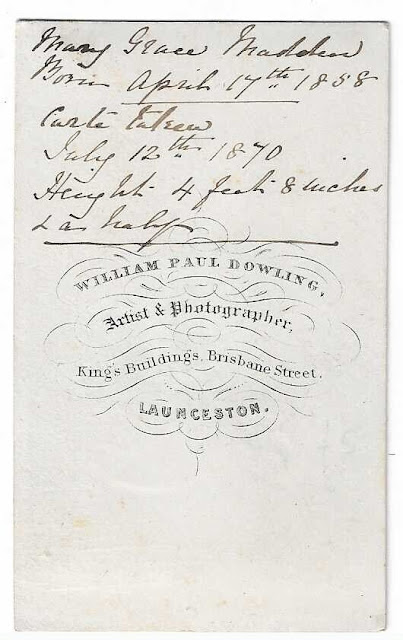 Mary Grace Madden
Born April 17th 1858
Carte taken
July 12th 1870
Height 4 feet 8 inches
& a half
WILLIAM PAUL DOWLING,
Artist & Photographer,
King's Buildings, Brisbane Street.
LAUNCESTON.